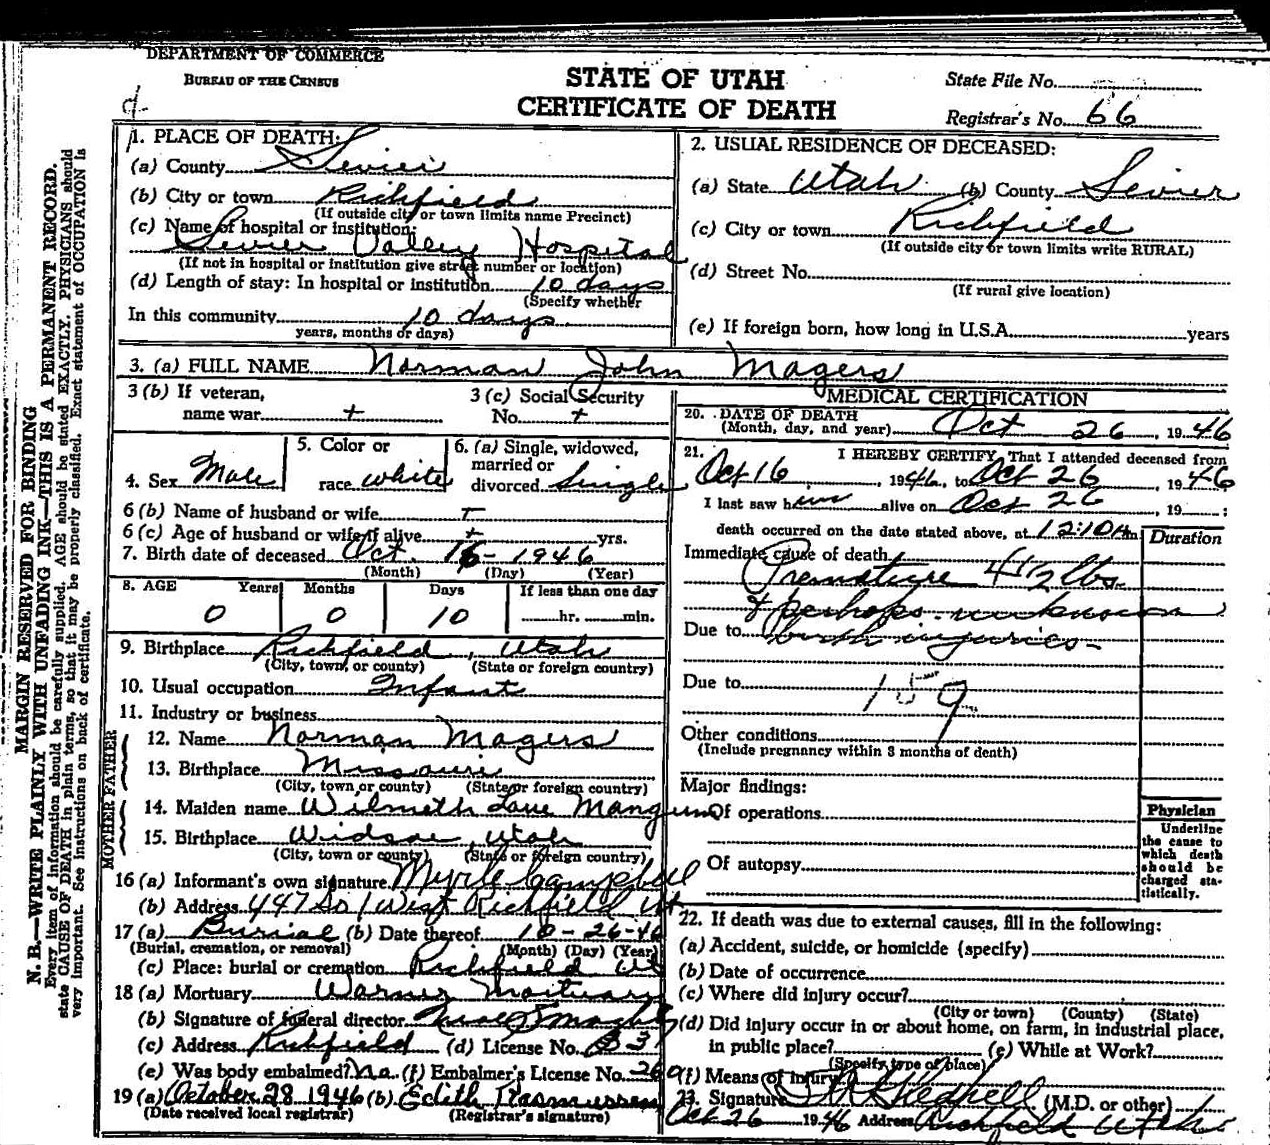 DEPARTMENT OF COMMERCE
BUREAU OF THE CENSUS
STATE OF UTAH
CERTIFICATE OF DEATH
State File No.
Registrar's No. 66
MARGIN RESERVED FOR BINDING
N. B.—WRITE PLAINLY WITH UNFADING INK—THIS IS A PERMANENT RECORD.
Every item of information should be carefully supplied. AGE should be stated EXACTLY. PHYSICIANS should
state CAUSE OF DEATH in plain terms, so that it may be properly classified. Exact statement of OCCUPATION is
very important. See instructions on back of certificate.
1. PLACE OF DEATH:
(a) County Sevier
(b) City or town Richfield
(If outside city or town limits name Precinct)
(c) Name of hospital or institution:
Sevier Valley Hospital
(If not in hospital or institution give street number or location)
(d) Length of stay: In hospital or institution 10 days
(Specify whether
In this community 10 days
years, months or days)
2. USUAL RESIDENCE OF DECEASED:
(a) State Utah (b) County Sevier
(c) City or town Richfield
(If outside city or town limits write RURAL)
(d) Street No.
(If rural give location)
(e) If foreign born, how long in U.S.A. years
3. (a) FULL NAME Norman John Magers
3 (b) If veteran,
name war +
3 (c) Social Security
No. +
4. Sex Male
5. Color or
race white
6. (a) Single, widowed,
married or
divorced Single
6 (b) Name of husband or wife +
6 (c) Age of husband or wife if alive + yrs.
7. Birth date of deceased Oct. 16 - 1946
(Month) (Day) (Year)
8. AGE Years Months Days If less than one day
0 0 10 hr. min.
9. Birthplace Richfield, Utah
(City, town, or county) (State or foreign country)
10. Usual occupation Infant
11. Industry or business
FATHER
12. Name Norman Magers
13. Birthplace Missouri
(City, town or county) (State or foreign country)
MOTHER
14. Maiden name Wilmeth Mangum
15. Birthplace Utah
(City, town or county) (State or foreign country)
16 (a) Informant's own signature Myrle Campbell
(b) Address 447 So 1 West Richfield Ut
17 (a) Burial (b) Date thereof 10-26-46
(Burial, cremation, or removal) (Month) (Day) (Year)
(c) Place: burial or cremation Richfield Ut
18 (a) Mortuary Mortuary
(b) Signature of funeral director
(c) Address Richfield (d) License No.
(e) Was body embalmed? No. (f) Embalmer's License No.
19 (a) October 28 1946 (b) Edith Rasmussen
(Date received local registrar) (Registrar's signature)
MEDICAL CERTIFICATION
20. DATE OF DEATH
(Month, day, and year) Oct 26, 1946
21. I HEREBY CERTIFY, That I attended deceased from
Oct 16, 1946, to Oct 26, 1946
I last saw him alive on Oct 26, 19 ;
death occurred on the date stated above, at 12:10 Am
Duration
Immediate cause of death
Premature 4 1/2 lbs.
& perhaps unknown
Due to birth injuries-
Due to
159
Other conditions
(Include pregnancy within 3 months of death)
Major findings:
Of operations
Of autopsy
Physician
Underline
the cause to
which death
should be
charged sta-
tistically.
22. If death was due to external causes, fill in the following:
(a) Accident, suicide, or homicide (specify)
(b) Date of occurrence
(c) Where did injury occur?
(City or town) (County) (State)
(d) Did injury occur in or about home, on farm, in industrial place,
in public place? (e) While at Work?
(Specify type of place)
(f) Means of injury
23. Signature (M.D. or other)
Oct 26 1946 Address Richfield Utah